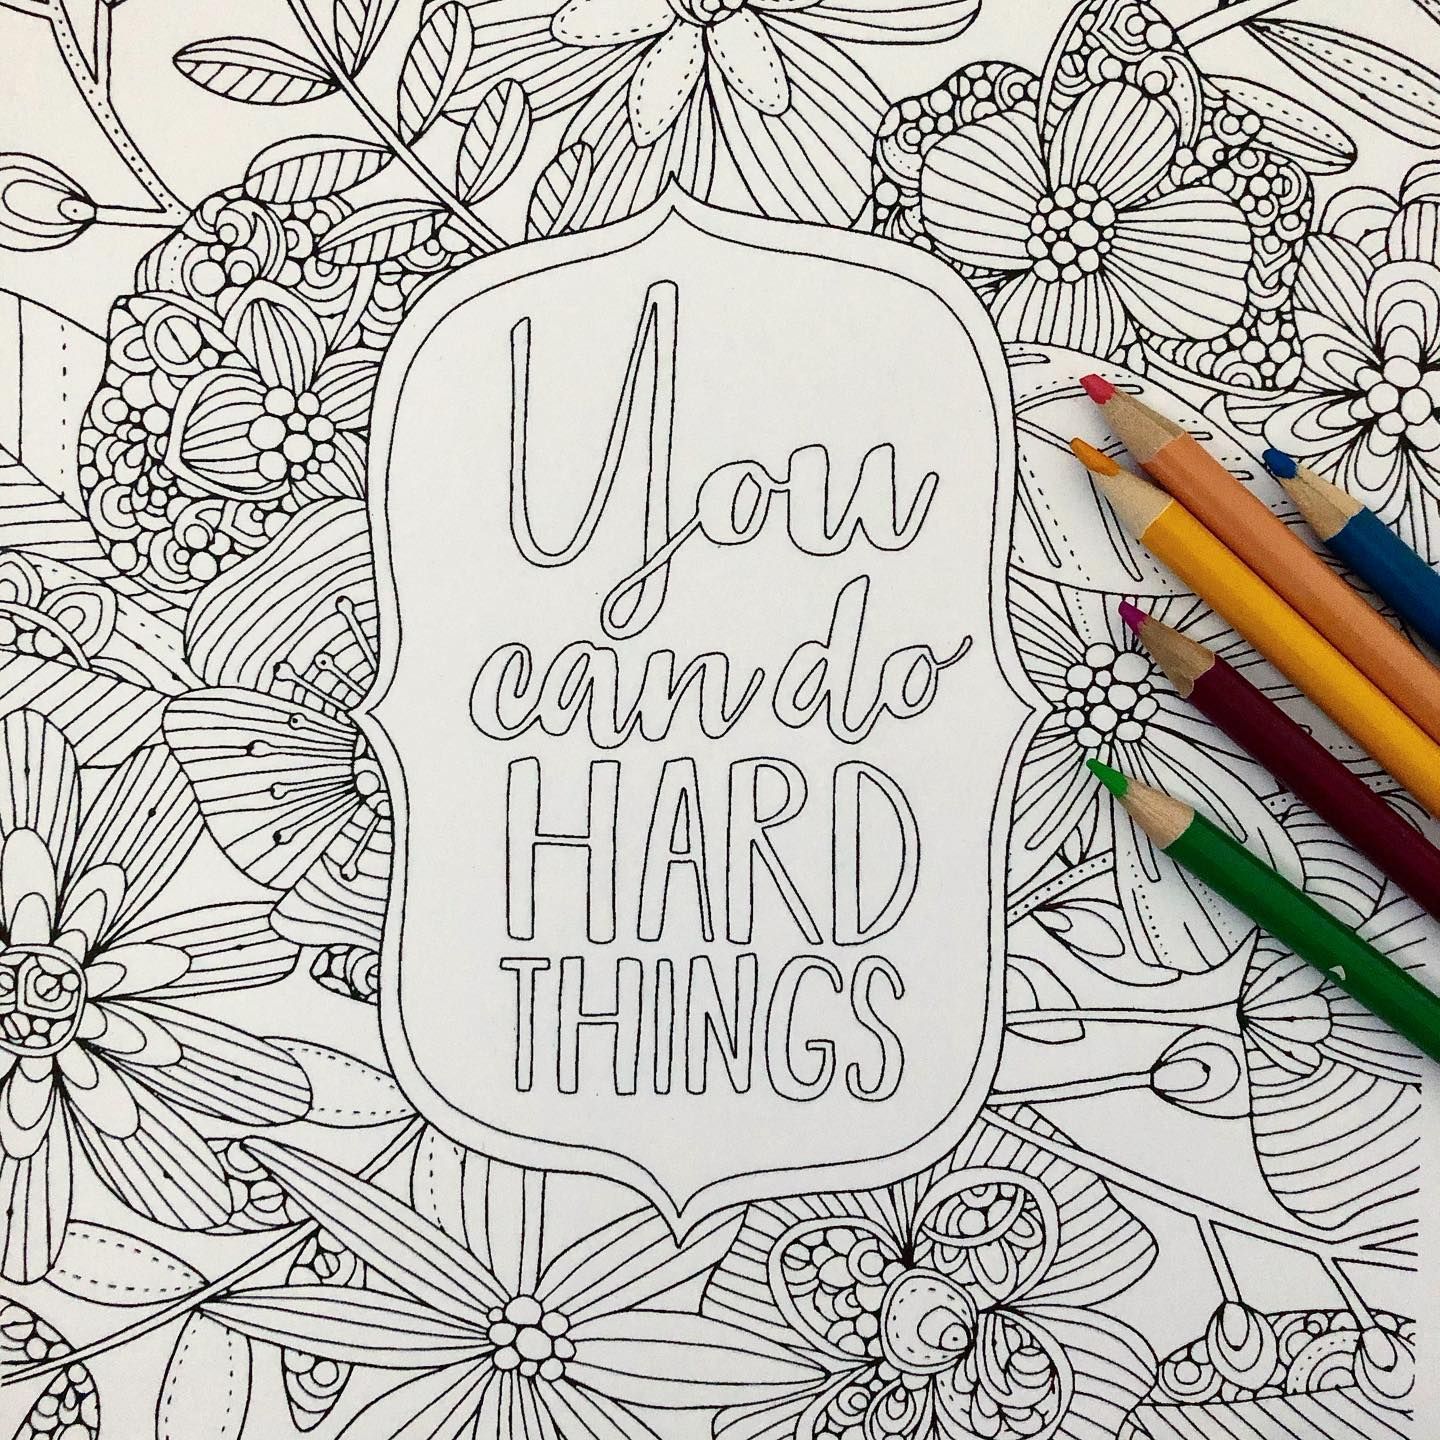 You
can do
HARD
THINGS